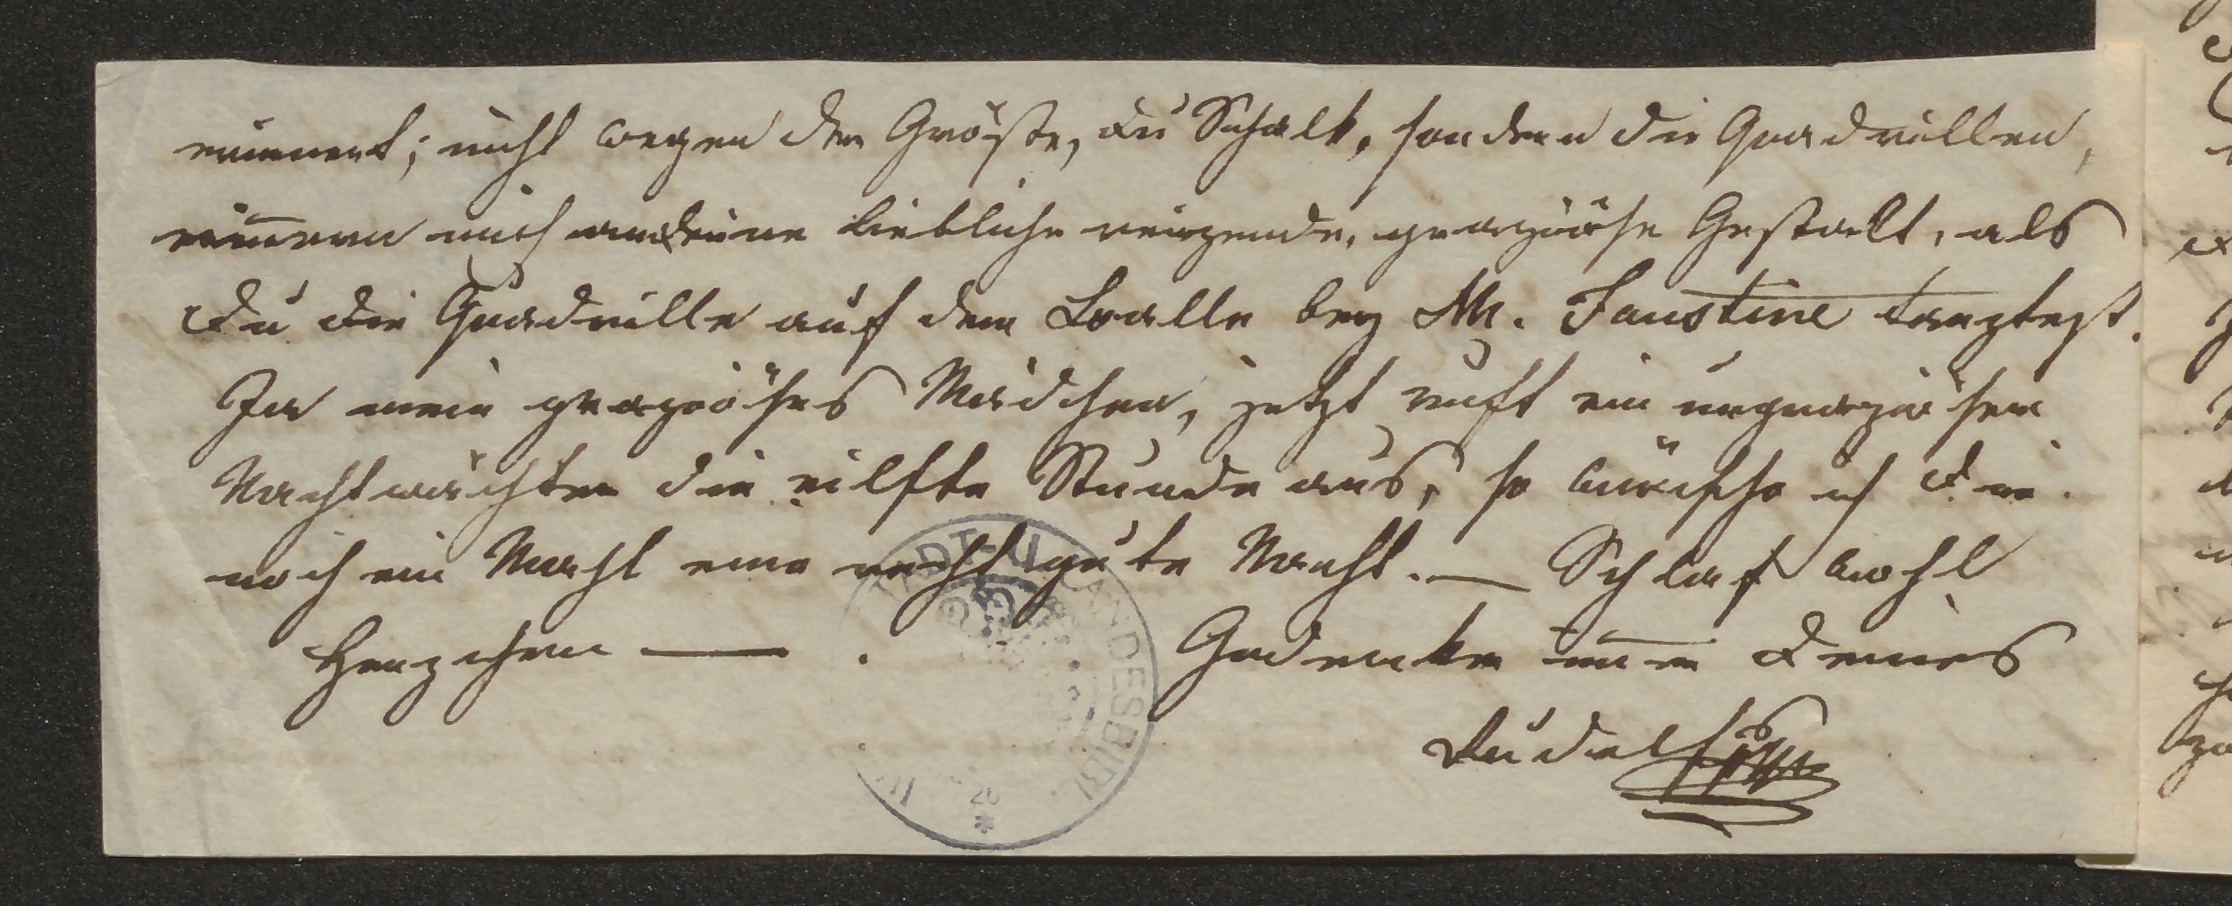 erinnert; nicht wegen der Größe, du Schalk, sondern die Quadrillen,
erinnern mich an deine liebliche reizende, graziöse Gestalt, als
du die Quadrille auf dem Balle bey M. Faustine tanztest.
Ja mein graziöses Mädchen, jetzt ruft ein ungraziöser
Nachtwächter die eilfte Stunde aus, so wünsche ich dir
noch ein Mahl eine recht gute Nacht. — Schlaf wohl
Herzchen — . Gedenke immer deines
Rudolfs
STADT- U. LANDESBIBL.